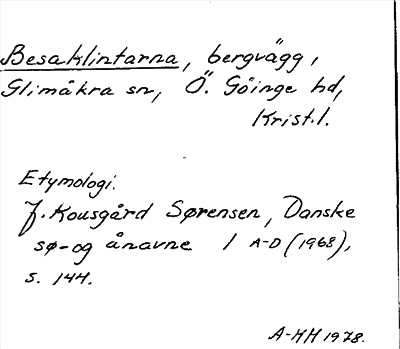 Besaklintarna, bergvägg i
Glimåkra sn, Ö. Göinge hd,
Krist.l.
Etymologi.
J. Kousgård Sørensen, Danske
sø- og ånavne 1 A-D (1968),
s. 144.
A-HH 1978.